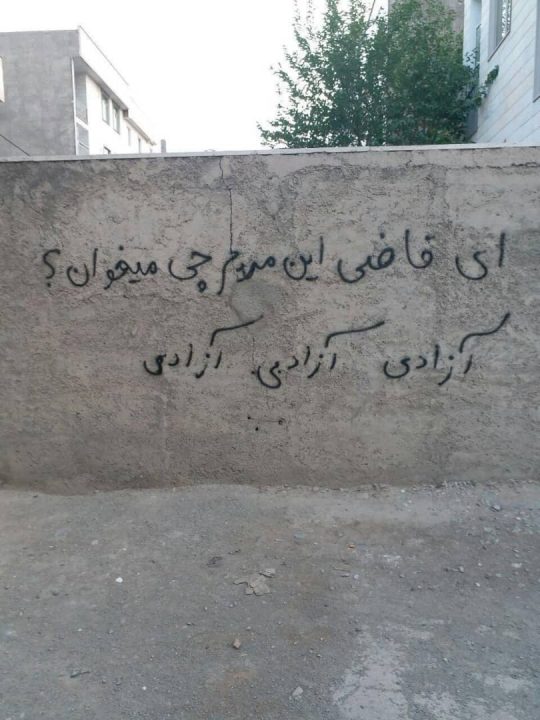 ای قاضی این مردم چی میخوان؟
آزادی آزادی آزادی